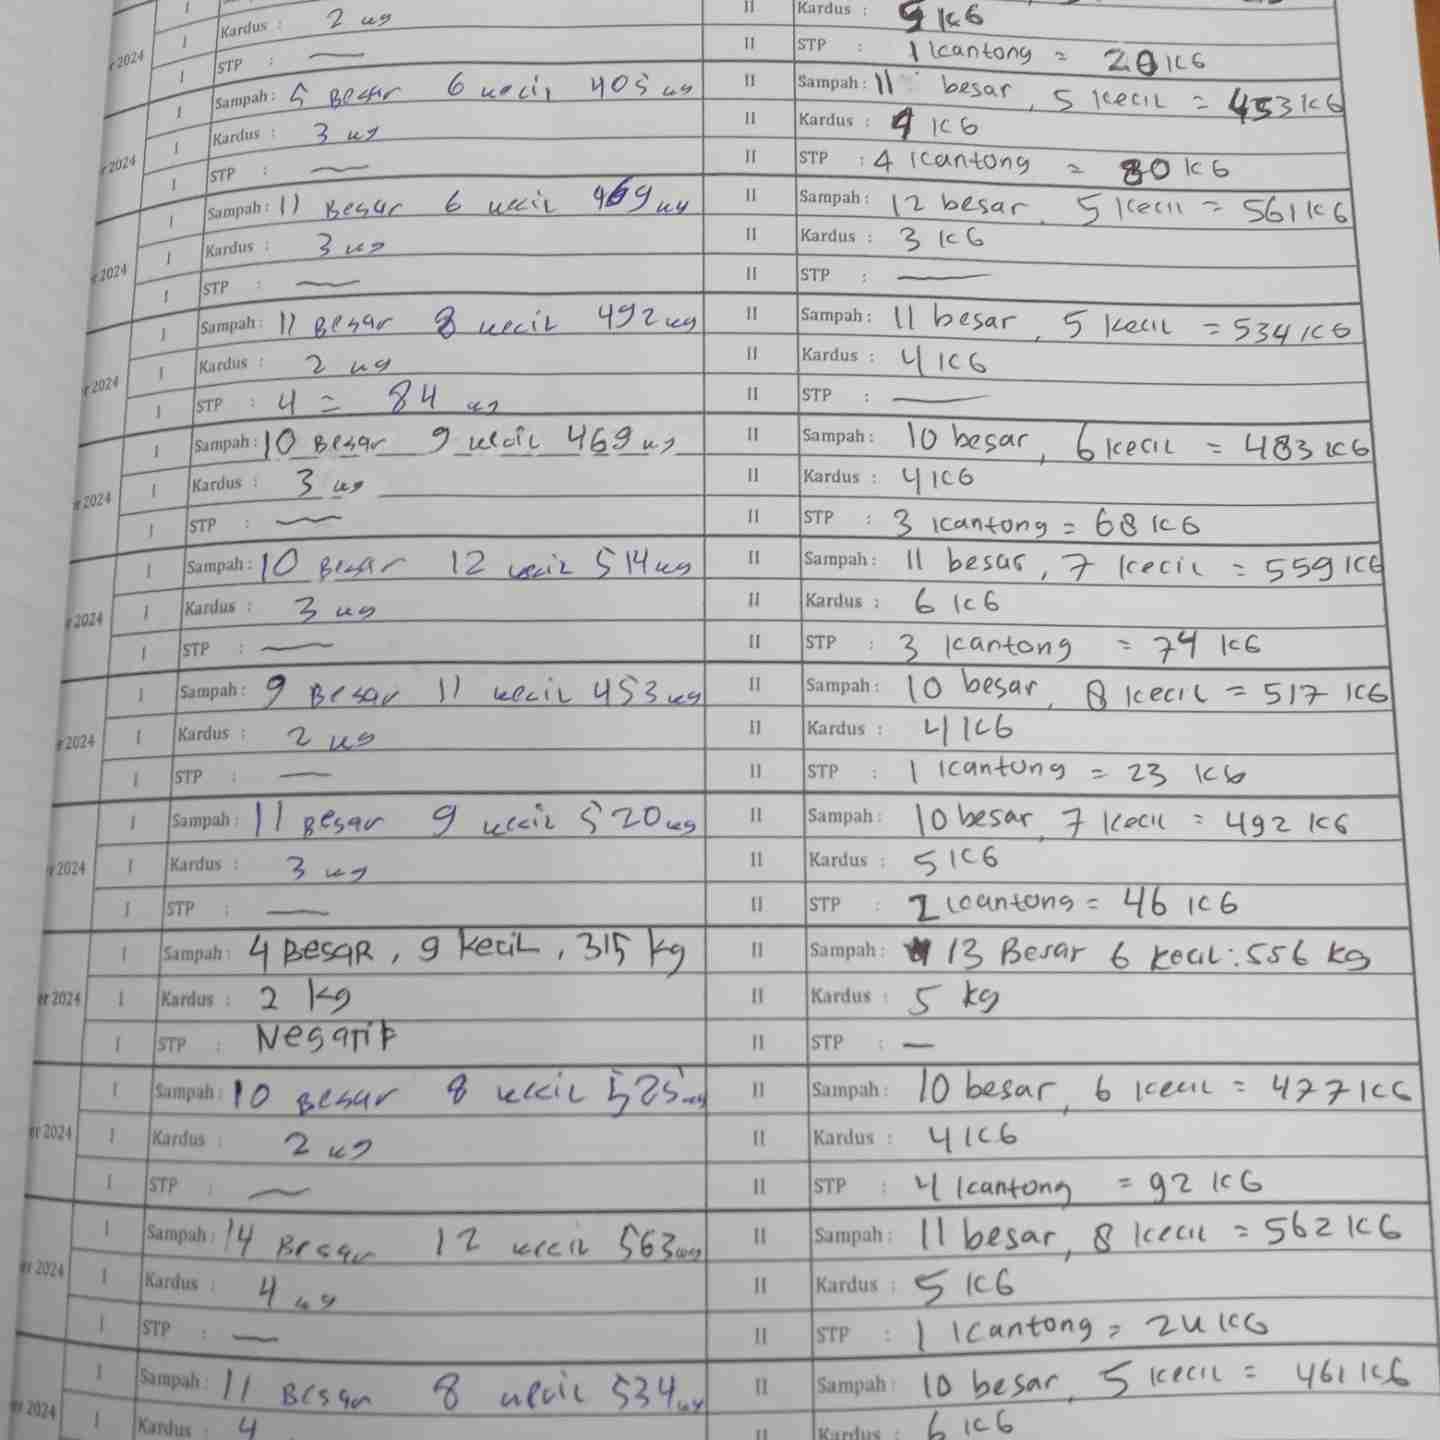 I Kardus : 2 kg II Kardus : 9 KG
r 2024 I STP : — II STP : 1 kantong = 20 KG
I Sampah : 5 Besar 6 kecil 405 kg II Sampah : 11 besar, 5 kecil = 453 KG
r 2024 I Kardus : 3 kg II Kardus : 4 KG
I STP : — II STP : 4 kantong = 80 KG
I Sampah : 11 Besar 6 kecil 469 kg II Sampah : 12 besar, 5 kecil = 561 KG
r 2024 I Kardus : 3 kg II Kardus : 3 KG
I STP : — II STP : —
I Sampah : 11 Besar 8 kecil 492 kg II Sampah : 11 besar, 5 kecil = 534 KG
r 2024 I Kardus : 2 kg II Kardus : 4 KG
I STP : 4 = 84 kg II STP : —
I Sampah : 10 Besar 9 kecil 469 kg II Sampah : 10 besar, 6 kecil = 483 KG
r 2024 I Kardus : 3 kg II Kardus : 4 KG
I STP : — II STP : 3 kantong = 68 KG
I Sampah : 10 Besar 12 kecil 514 kg II Sampah : 11 besar, 7 kecil = 559 KG
r 2024 I Kardus : 3 kg II Kardus : 6 KG
I STP : — II STP : 3 kantong = 74 KG
I Sampah : 9 Besar 11 kecil 453 kg II Sampah : 10 besar, 8 kecil = 517 KG
r 2024 I Kardus : 2 kg II Kardus : 4 KG
I STP : — II STP : 1 kantong = 23 KG
I Sampah : 11 Besar 9 kecil 520 kg II Sampah : 10 besar, 7 kecil = 492 KG
r 2024 I Kardus : 3 kg II Kardus : 5 KG
I STP : — II STP : 2 kantong = 46 KG
I Sampah : 4 BESAR, 9 KECIL, 315 kg II Sampah : 13 Besar 6 kecil : 556 kg
er 2024 I Kardus : 2 kg II Kardus : 5 kg
I STP : Negatif II STP : —
I Sampah : 10 Besar 8 kecil 525 kg II Sampah : 10 besar, 6 kecil = 477 KG
er 2024 I Kardus : 2 kg II Kardus : 4 KG
I STP : — II STP : 4 kantong = 92 KG
I Sampah : 14 Besar 12 kecil 563 kg II Sampah : 11 besar, 8 kecil = 562 KG
er 2024 I Kardus : 4 kg II Kardus : 5 KG
I STP : — II STP : 1 kantong = 24 KG
I Sampah : 11 Besar 8 kecil 534 kg II Sampah : 10 besar, 5 kecil = 461 KG
er 2024 I Kardus : 4 II Kardus : 6 KG